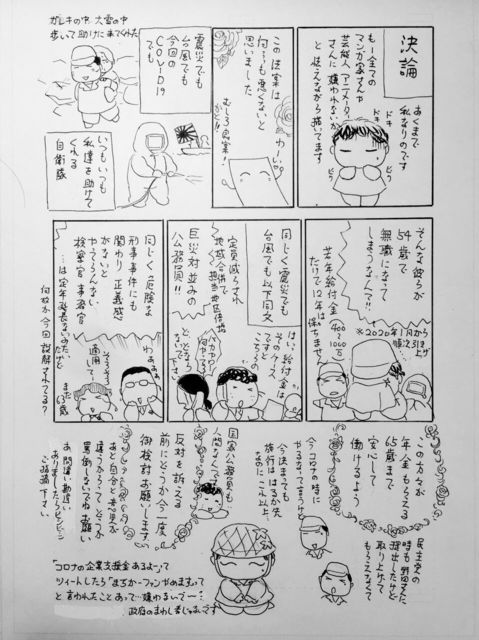 決論
あくまで
私なりのです
もー全ての
マンガ家さんや
芸能人、アニメーター
さんに嫌われないか
と怯えながら描いてます
ドキ
ドキ
ビク
ビク
この法案は
何っも悪くないと
思いました
むしろ良案!
かと!!
わぃ
ガレキの中、大雪の中
歩いて助けに来てくれた
震災でも
台風でも
今回の
COVID19
でも
いつもいつも
私達を助けて
くれる
自衛隊
そんな彼らが
54歳で
無職になって
しまうなんて!!
※2020年1月から
順次引き上げ
若年給付金
(400〜1000万)
だけで12年は
保ちません
同じく震災でも
台風でも以下同文
定員減らされ
地域合併で
担当地区倍増
巨災対並みの
公務員!!
はい、給付金は
そのケース
ですと
こちらの
同じく危険な
刑事事件にも
関わり正義感
がないと
やってらんない
検察官 事務官
…は定年延長ないみたい
だけど
何故か今回誤解されてる?
わぁぁ
そろそろ
適用して
まだ
63歳
この方々が
年金もらえる
65歳まで
安心して
働けるよう
民主党の
時も野田さんに
提出したけど
取り上げて
もらえなくて
今コロナの時に
やるなって言うけど
今決まっても
施行ははるか先
なのに これ以上
国家公務員も
人間なんです
反対を訴える
前にどうか今一度
御検討お願いします
あと自分と意見が
違うからってどうか
罵倒しないでねお願い
あ、間違い勘違い
ありましたらジャンジャン
ご指摘下さい
「コロナの企業支援金あるよー」って
ツィートしたら「まちかーファンやめます」って
と言われたことあって…嫌わないでー?
政府のまわし者じゃあないです